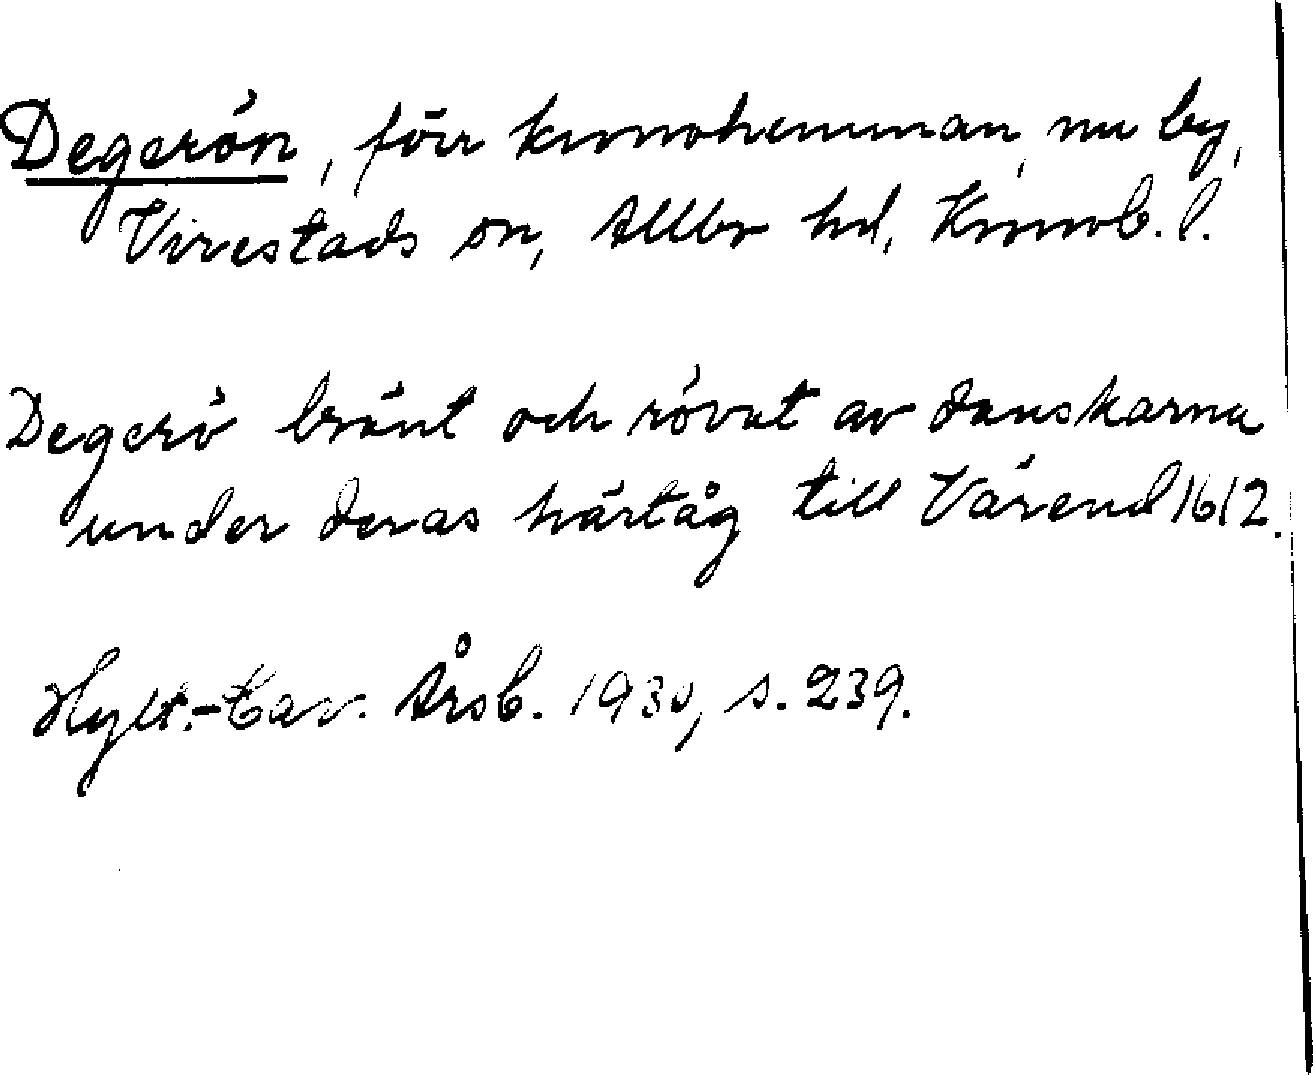 Degerön, förr kronohemman, nu by,
Virestads sn, Allbo hd, Kronob. l.
Degerö bränt och rövat av danskarna
under deras härtåg till Värend 1612.
Hylt.-Cav. Årsb. 1930, s. 239.